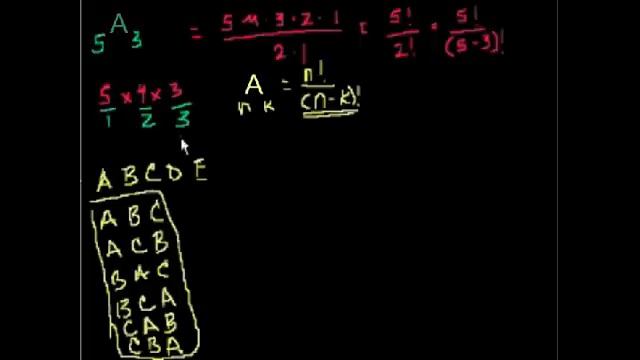 5A3 = 5 4 · 3 · 2 · 1 / 2 · 1 = 5! / 2! = 5! / (5-3)!
5/1 × 4/2 × 3/3
nAk = n! / (n-k)!
A B C D E
A B C
A C B
B A C
B C A
C A B
C B A